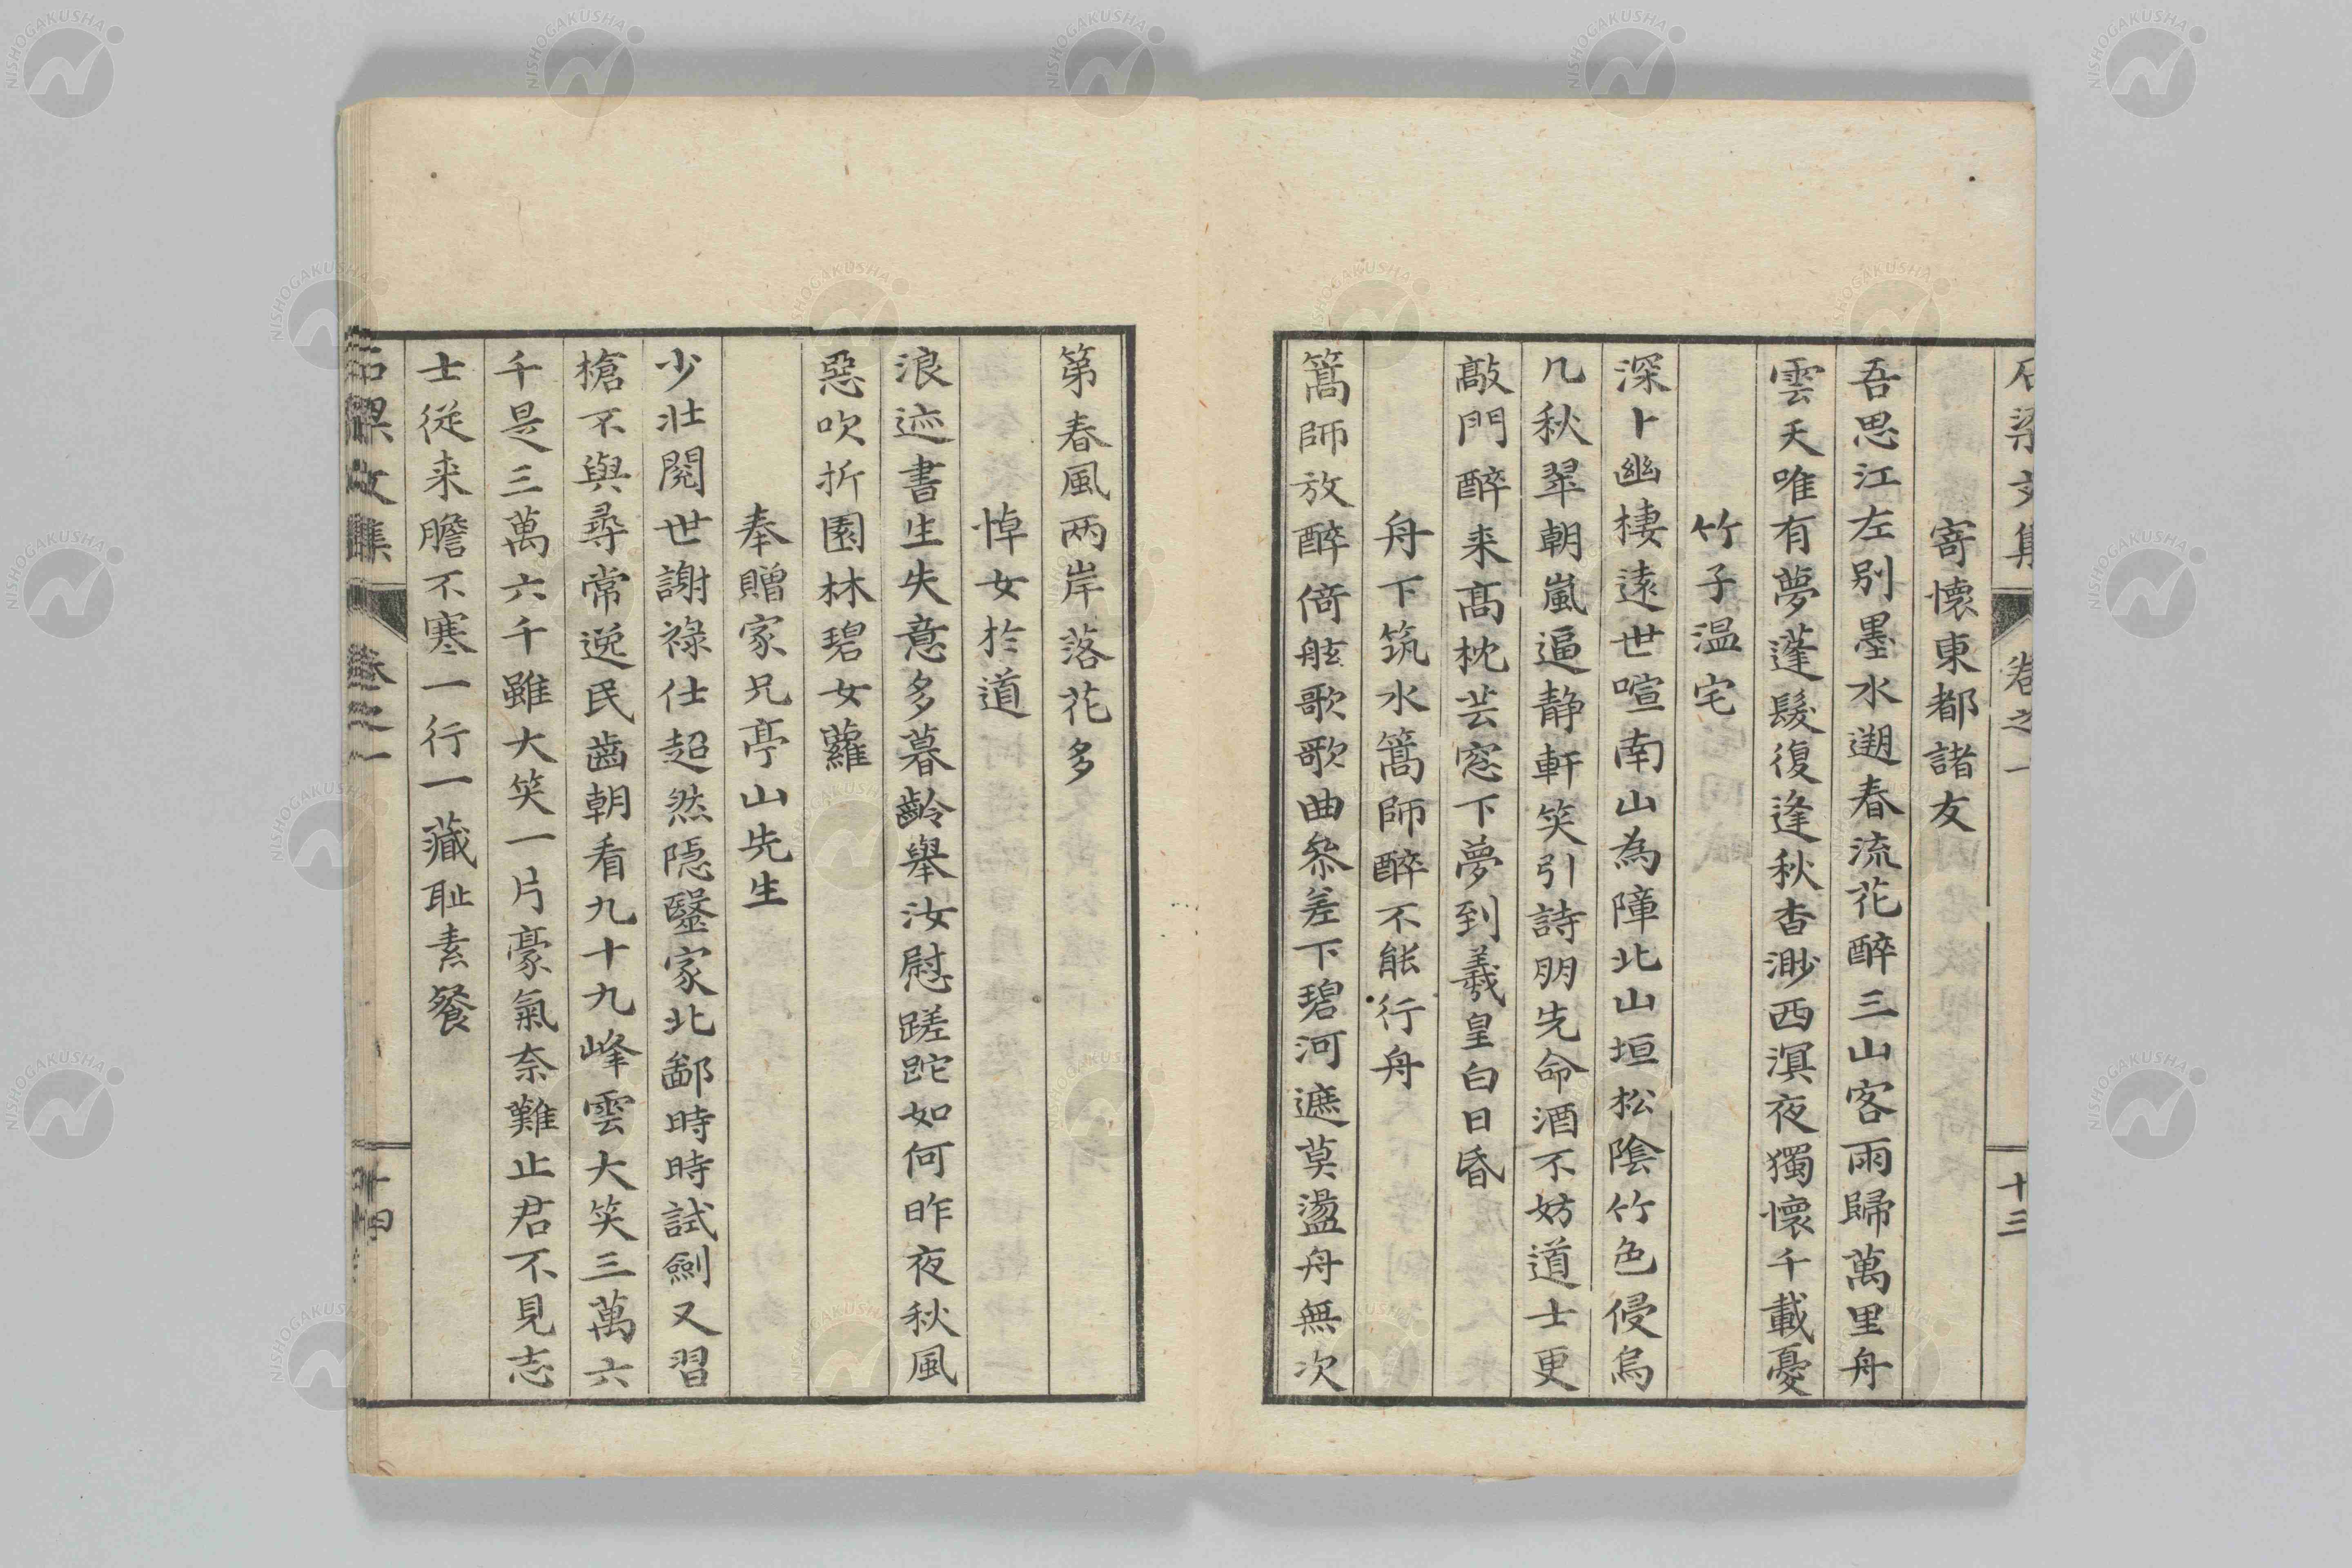 石梁文集 卷之一 十三
寄懷東都諸友
吾思江左別墨水遡春流花醉三山客雨歸萬里舟
雲天唯有夢蓬鬂復逢秋杳渺西溟夜獨懷千載憂
竹子温宅
深卜幽棲遠世喧南山為障北山垣松陰竹色侵烏
几秋翠朝嵐逼静軒笑引詩朋先命酒不妨道士更
敲門醉来髙枕芸窓下夢到羲皇白日昏
舟下筑水篙師醉不能行舟
篙師放醉倚舷歌歌曲叅差下碧河遮莫盪舟無次
第春風两岸落花多
悼女於道
浪迹書生失意多暮齡舉汝慰蹉跎如何昨夜秋風
惡吹折園林碧女蘿
奉贈家兄亭山先生
少壮閲世謝禄仕超然隠毉家北鄙時時試劍又習
槍不與尋常逸民齒朝看九十九峰雲大笑三萬六
千是三萬六千雖大笑一片豪氣奈難止君不見志
士従来膽不寒一行一藏耻素餐
石梁文集 卷之一 十四
NISHOGAKUSHA